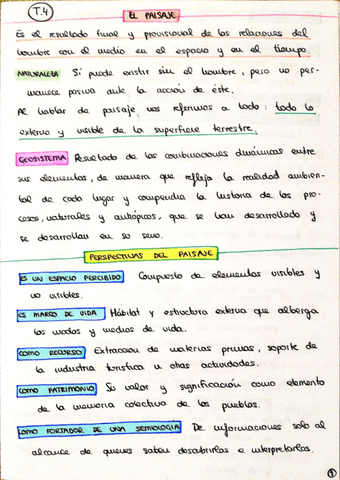 T.4
EL PAISAJE
Es el resultado final y provisional de las relaciones del
hombre con el medio en el espacio y en el tiempo.
NATURALEZA Sí puede existir sin el hombre, pero no per-
manece pasiva ante la acción de éste.
Al hablar de paisaje nos referimos a todo: todo lo
externo y visible de la superficie terrestre.
GEOSISTEMA Resultado de las combinaciones dinámicas entre
sus elementos, de manera que refleja la realidad ambien-
tal de cada lugar y compendia la historia de los pro-
cesos, naturales y antrópicos, que se han desarrollado y
se desarrollan en su seno.
PERSPECTIVAS DEL PAISAJE
ES UN ESPACIO PERCIBIDO Compuesto de elementos visibles y
no visibles.
ES MARCO DE VIDA Hábitat y estructura externa que alberga
los modos y medios de vida.
COMO RECURSO Extracción de materias primas, soporte de
la industria turística u otras actividades.
COMO PATRIMONIO Su valor y significación como elemento
de la memoria colectiva de los pueblos.
COMO PORTADOR DE UNA SEMIOLOGÍA De informaciones solo al
alcance de quienes saben descubrirlas e interpretarlas.
1